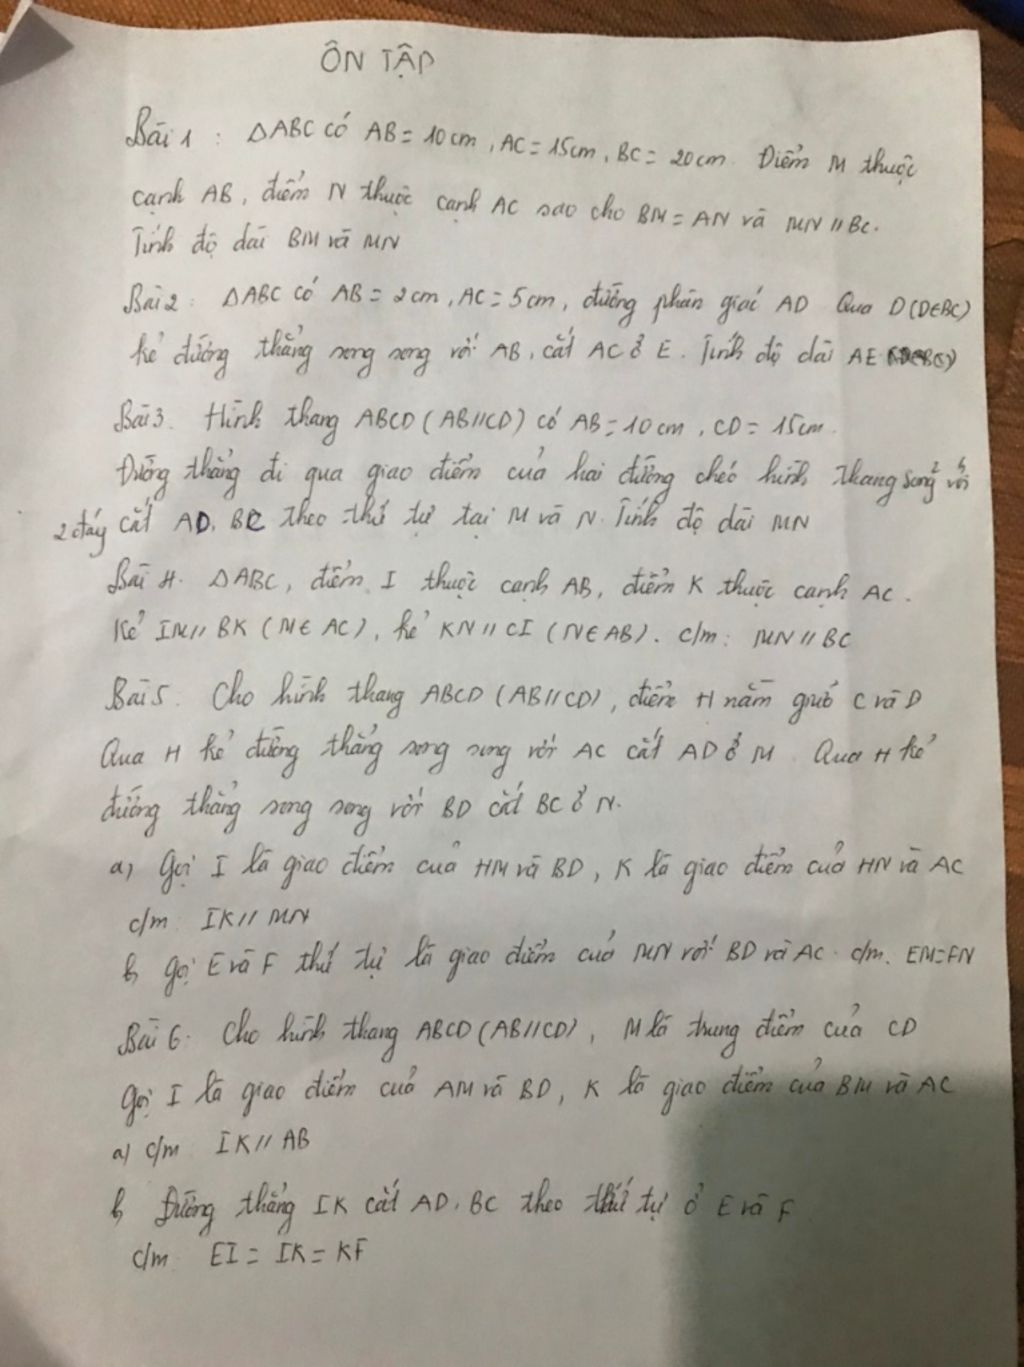 ÔN TẬP
Bài 1 : ΔABC có AB = 10cm, AC = 15cm, BC = 20cm. Điểm M thuộc
cạnh AB, điểm N thuộc cạnh AC sao cho BM = AN và MN // BC.
Tính độ dài BM và MN
Bài 2 : ΔABC có AB = 2cm, AC = 5cm, đường phân giác AD Qua D (D∈BC)
kẻ đường thẳng song song với AB, cắt AC ở E. Tính độ dài AE
Bài 3. Hình thang ABCD (AB//CD) có AB = 10cm, CD = 15cm.
Đường thẳng đi qua giao điểm của hai đường chéo hình thang song² với
2 đáy cắt AD, BC theo thứ tự tại M và N. Tính độ dài MN
Bài 4. ΔABC, điểm I thuộc cạnh AB, điểm K thuộc cạnh AC.
Kẻ IM // BK (M∈ AC), kẻ KN // CI (N∈AB). c/m: MN // BC
Bài 5. Cho hình thang ABCD (AB//CD), điểm H nằm giữa C và D
Qua H kẻ đường thẳng song song với AC cắt AD ở M Qua H kẻ
đường thẳng song song với BD cắt BC ở N.
a) Gọi I là giao điểm của HM và BD, K là giao điểm của HN và AC
c/m IK // MN
b Gọi E và F thứ tự là giao điểm của MN với BD và AC. c/m. EM=FN
Bài 6. Cho hình thang ABCD (AB//CD), M là trung điểm của CD
Gọi I là giao điểm của AM và BD, K là giao điểm của BM và AC
a) c/m IK // AB
b Đường thẳng IK cắt AD, BC theo thứ tự ở E và F
c/m EI = IK = KF